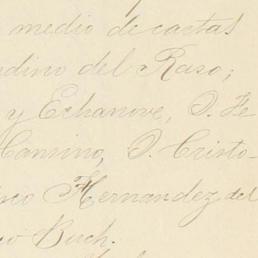 medio de cartas
dino del Raso;
y Echanove, D. Fe
Camino, D. Cristo-
co Hernandez del
co Buch.